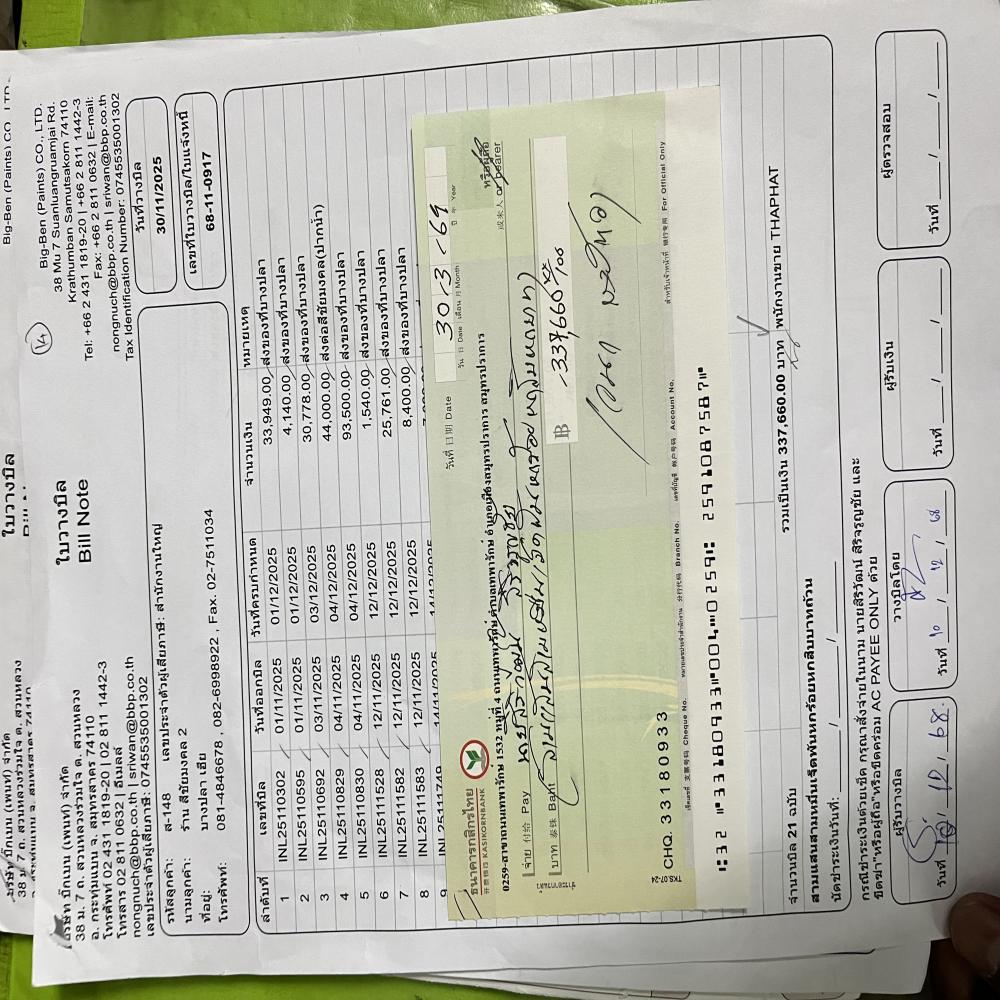 Big-Ben (Paints) CO., LTD.
ใบวางบิล
บริษัท บิ๊กเบน (เพนท์) จำกัด
38 ม. 7 ถ. สวนหลวงร่วมใจ ต. สวนหลวง
อ. กระทุ่มแบน จ. สมุทรสาคร 74110
โทรศัพท์ 02 431 1819-20 | 02 811 1442-3
โทรสาร 02 811 0632 | อีเมลล์
nongnuch@bbp.co.th | sriwan@bbp.co.th
เลขประจำตัวผู้เสียภาษี: 0745535001302
ใบวางบิล
Bill Note
Big-Ben (Paints) CO., LTD.
38 Mu 7 Suanluangruamjai Rd.
Krathumban Samutsakorn 74110
Tel: +66 2 431 1819-20 | +66 2 811 1442-3
Fax: +66 2 811 0632 | E-mail:
nongnuch@bbp.co.th | sriwan@bbp.co.th
Tax Identification Number: 0745535001302
รหัสลูกค้า: ส-148 เลขประจำตัวผู้เสียภาษี: สำนักงานใหญ่
นามลูกค้า: ร้าน สีชัยมงคล 2
ที่อยู่: บางปลา เฮีย
โทรศัพท์: 081-4846678 , 082-6998922 , Fax. 02-7511034
วันที่วางบิล
30/11/2025
เลขที่ใบวางบิล/ใบแจ้งหนี้
68-11-0917
ลำดับที่ เลขที่บิล วันที่ออกบิล วันที่ครบกำหนด จำนวนเงิน หมายเหตุ
1 INL25110302 01/11/2025 01/12/2025 33,949.00 ส่งของที่บางปลา
2 INL25110595 01/11/2025 01/12/2025 4,140.00 ส่งของที่บางปลา
3 INL25110692 03/11/2025 03/12/2025 30,778.00 ส่งของที่บางปลา
4 INL25110829 04/11/2025 04/12/2025 44,000.00 ส่งต่อสีชัยมงคล(ปากน้ำ)
5 INL25110830 04/11/2025 04/12/2025 93,500.00 ส่งของที่บางปลา
6 INL25111528 12/11/2025 12/12/2025 1,540.00 ส่งของที่บางปลา
7 INL25111582 12/11/2025 12/12/2025 25,761.00 ส่งของที่บางปลา
8 INL25111583 12/11/2025 12/12/2025 8,400.00 ส่งของที่บางปลา
9 INL25111749 14/11/2025 14/12/2025
ธนาคารกสิกรไทย
开泰银行 KASIKORNBANK
วันที่ 日期 Date 30-3-69
วัน 日 Date เดือน 月 Month ปี 年 Year
0259-สาขาถนนเทพารักษ์ 1532 หมู่ที่ 4 ถนนเทพารักษ์ ตำบลเทพารักษ์ อำเภอเมืองสมุทรปราการ สมุทรปราการ
หรือผู้ถือ
或来人 or bearer
จ่าย 付给 Pay นายสิริวัฒน์ สิริจรูญชัย
บาท 泰铢 Baht (สามแสนสามหมื่นเจ็ดพันหกร้อยหกสิบบาทถ้วน)
฿ -337,660 xx/100
CHQ. 33180933
เช็คเลขที่ 支票号码 Cheque No. หมายเลขประจำสำนักงาน 分行代码 Branch No. เลขที่บัญชี 帐户号码 Account No. สำหรับเจ้าหน้าที่ 银行专用 For Official Only
TKS.07-24
32 33180933 004 0259 2591087587
จำนวนบิล 21 ฉบับ รวมเป็นเงิน 337,660.00 บาท พนักงานขาย THAPHAT
สามแสนสามหมื่นเจ็ดพันหกร้อยหกสิบบาทถ้วน
นัดชำระเงินวันที่: ____/____/____
กรณีชำระเงินด้วยเช็ค กรุณาสั่งจ่ายในนาม นายสิริวัฒน์ สิริจรูญชัย และ
ขีดฆ่า"หรือผู้ถือ"หรือขีดคร่อม AC PAYEE ONLY ด้วย
ผู้รับวางบิล
วันที่ 10 / 12 / 68
วางบิลโดย
วันที่ 10 / 12 / 68
ผู้รับเงิน
วันที่ ____/____/____
ผู้ตรวจสอบ
วันที่ ____/____/____